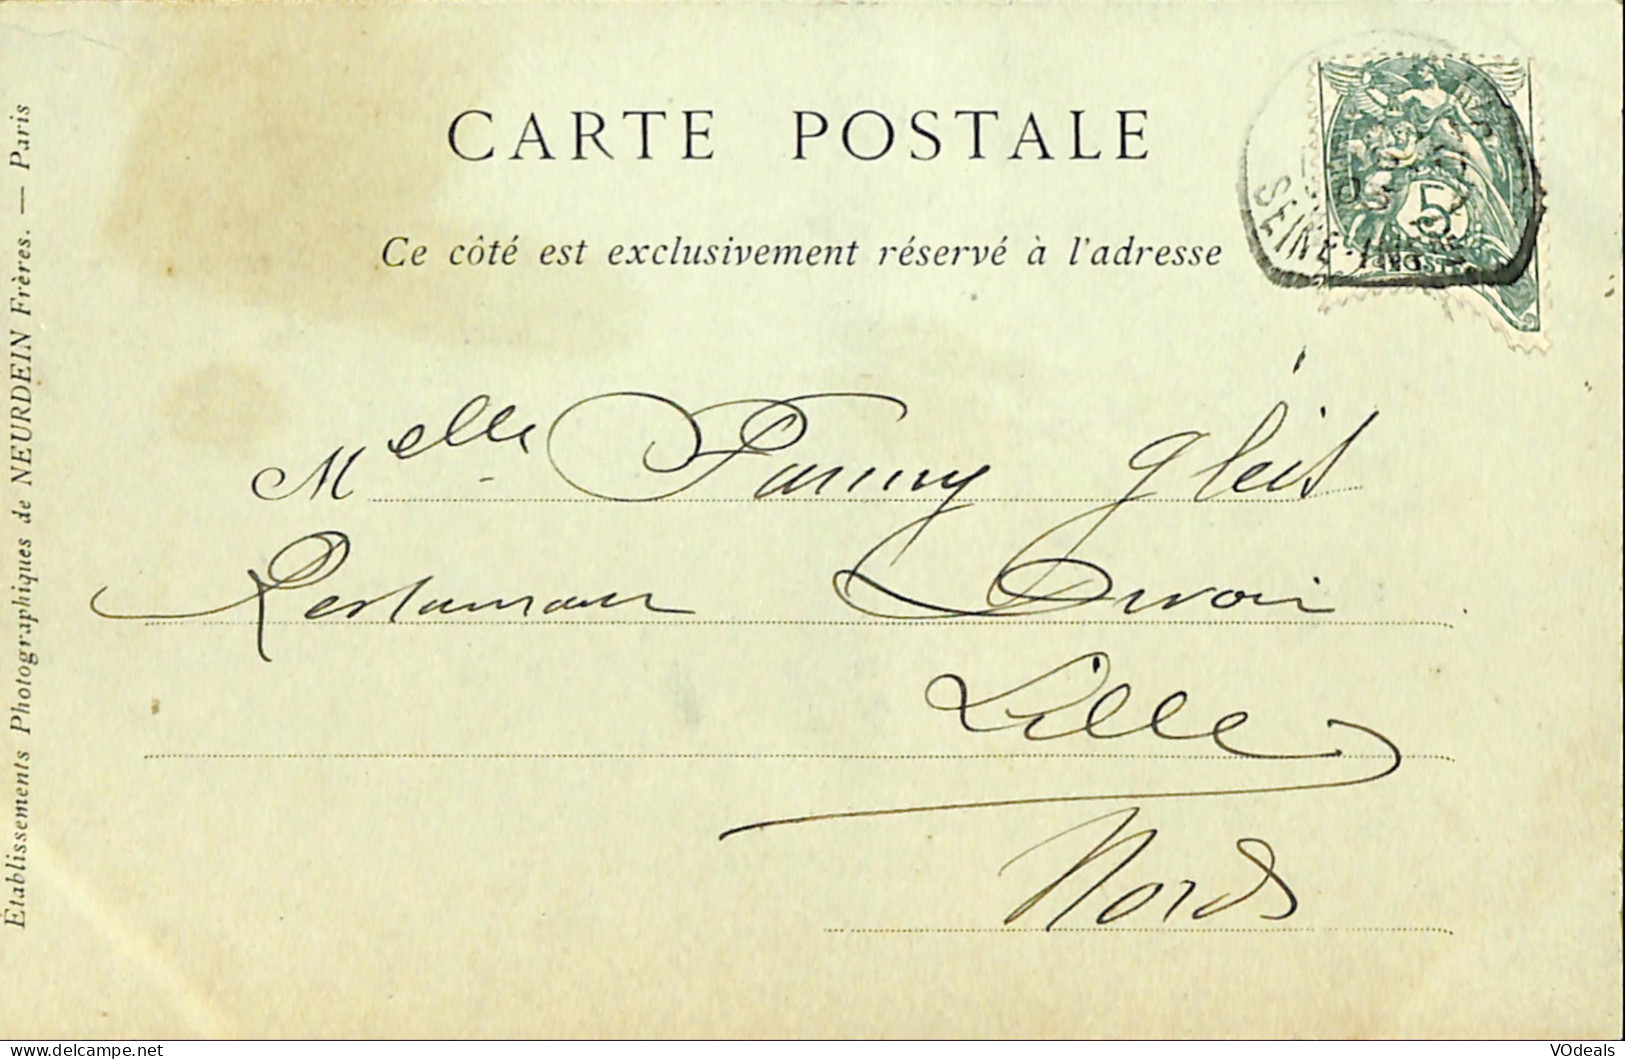 CARTE POSTALE
Ce côté est exclusivement réservé à l'adresse
SEINE
5
Melle Fanny Gleis
Lille
Nord
Établissements Photographiques de NEURDEIN Frères. — Paris
www.delcampe.net
VOdeals